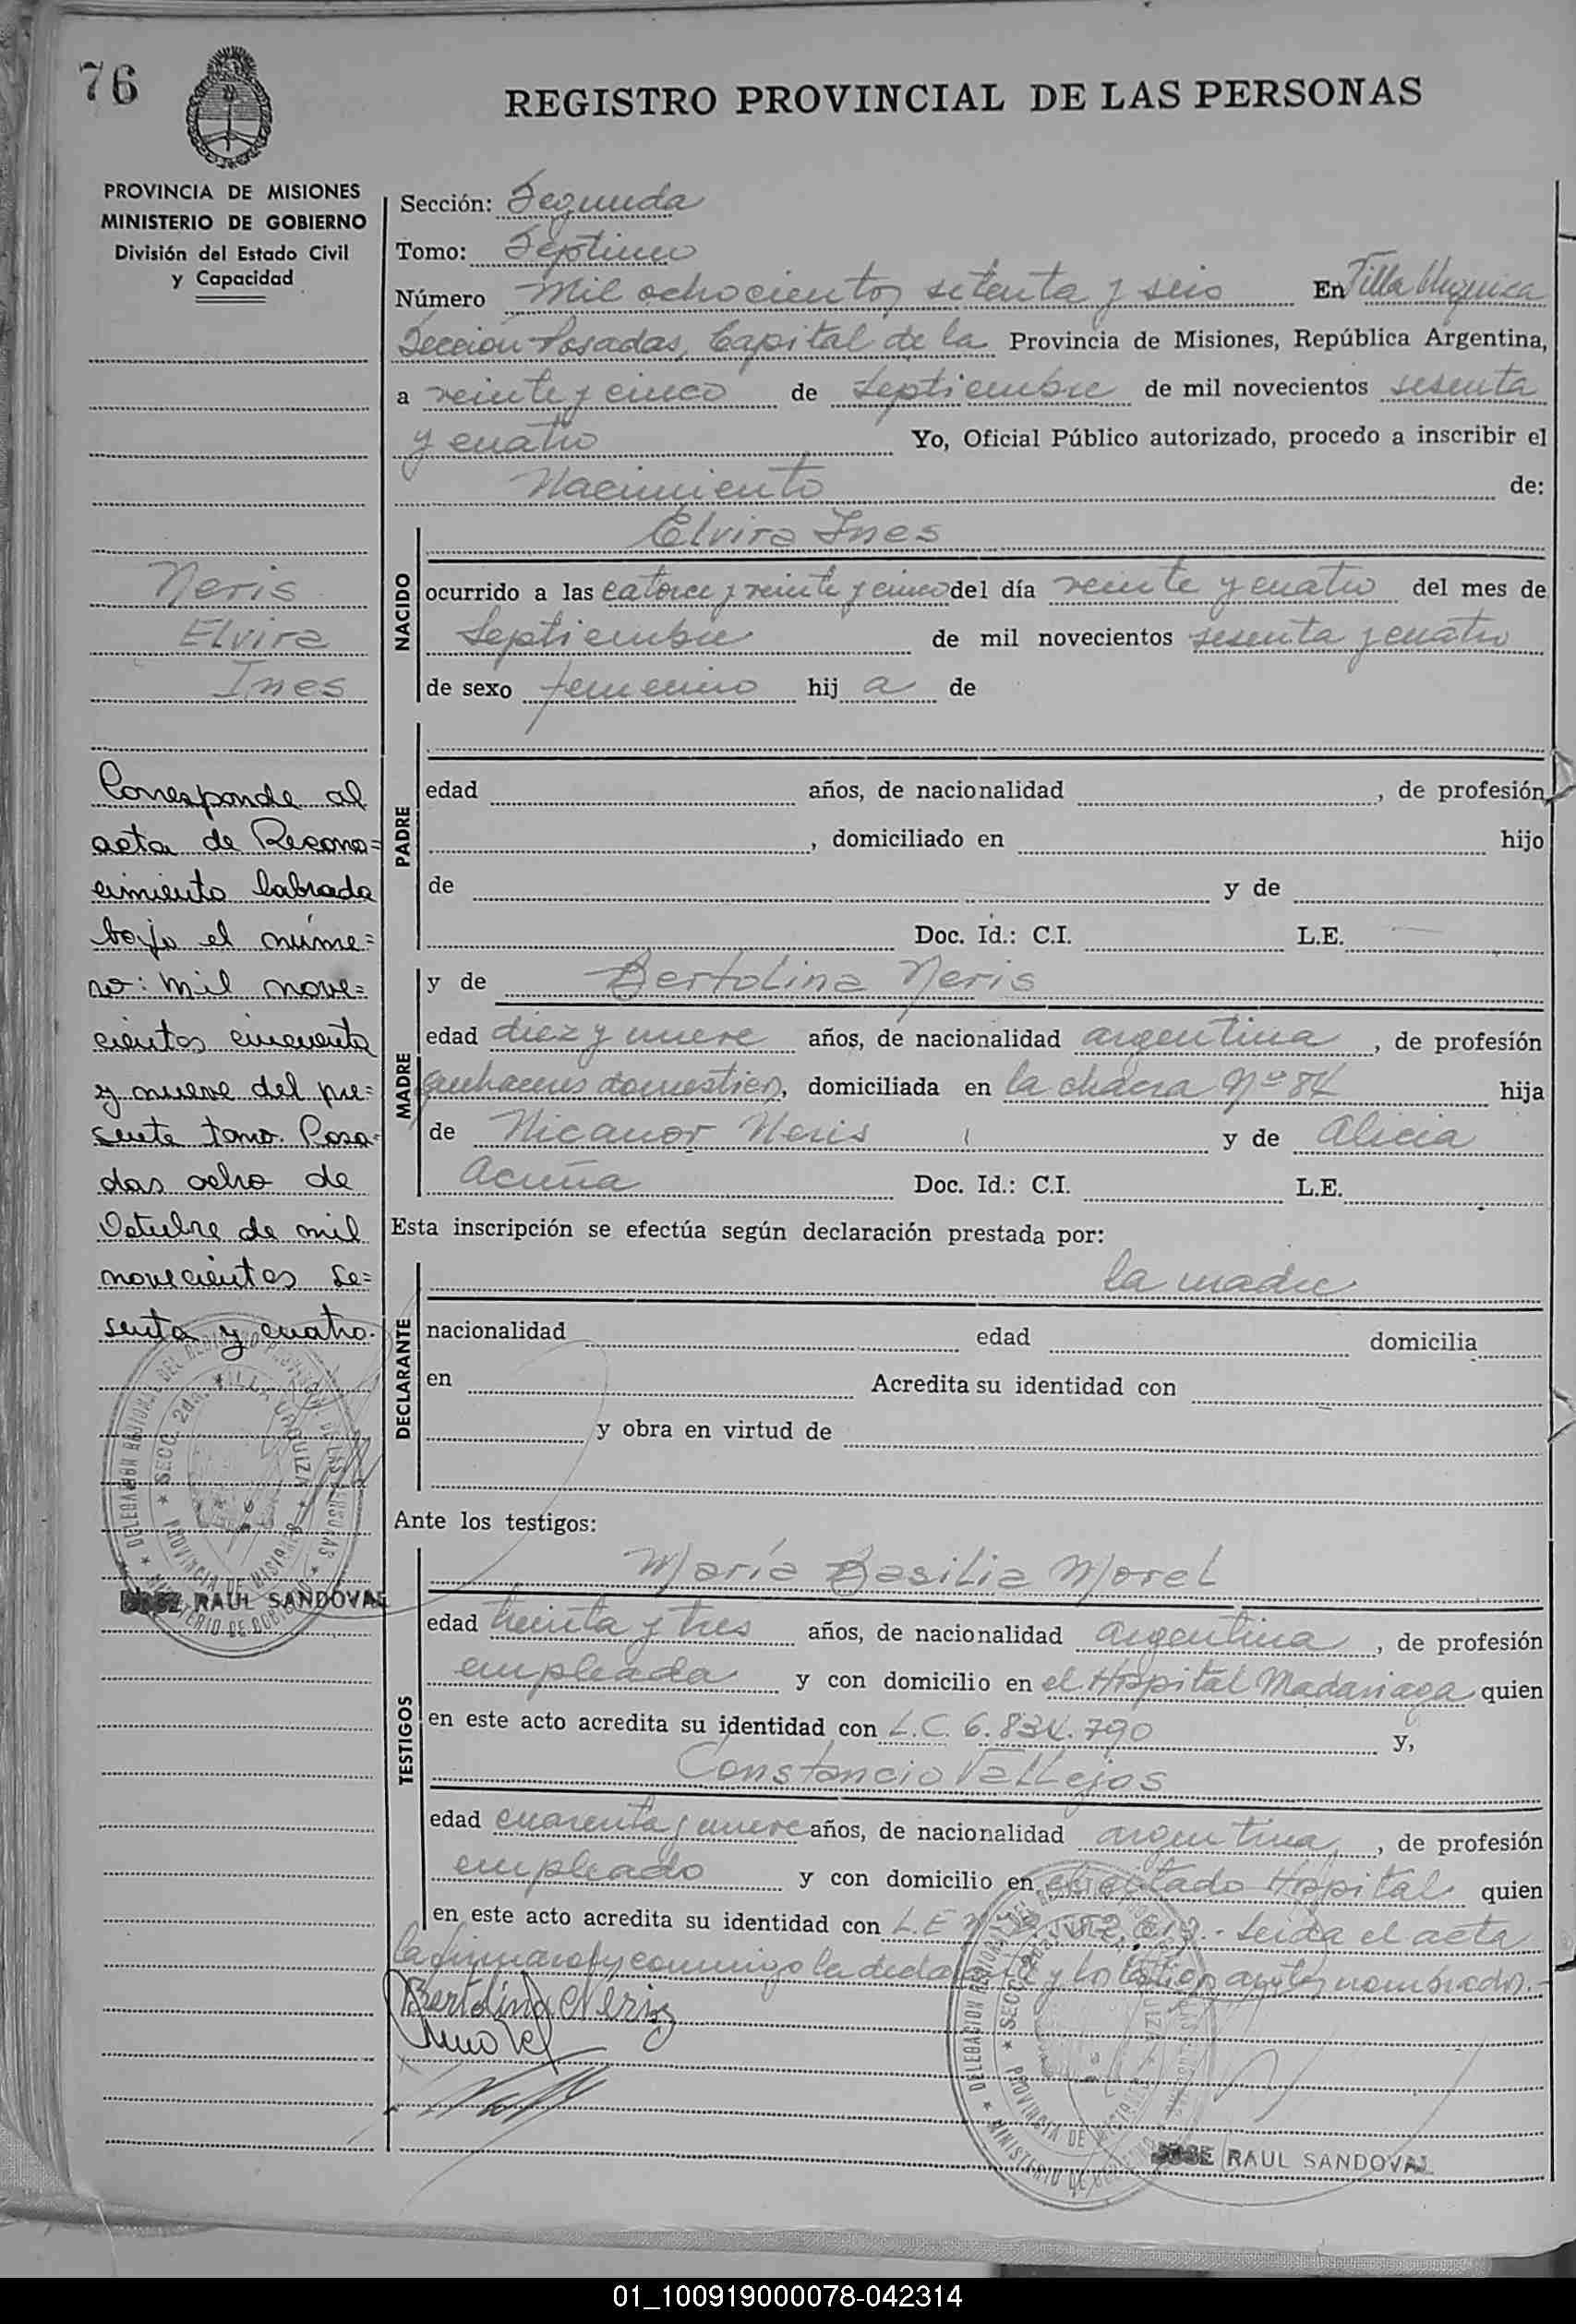 76
REGISTRO PROVINCIAL DE LAS PERSONAS
PROVINCIA DE MISIONES
MINISTERIO DE GOBIERNO
División del Estado Civil
y Capacidad
Neris
Elvira
Ines
Corresponde al
acta de Recono=
cimiento labrada
bajo el núme=
ro: mil nove=
cientos cincuenta
y nueve del pre=
sente tomo. Posa=
das ocho de
Octubre de mil
novecientos se=
senta y cuatro.
DELEGACION REGIONAL DEL REGISTRO PROVINCIAL DE LAS PERSONAS
SECC. 2da. VILLA URQUIZA
PROVINCIA DE MISIONES
MINISTERIO DE GOBIERNO
JOSE RAUL SANDOVAL
Sección: Segunda
Tomo: Septimo
Número Mil ochocientos setenta y seis En Villa Urquiza
Sección Posadas, Capital de la Provincia de Misiones, República Argentina,
a veinte y cinco de Septiembre de mil novecientos sesenta
y cuatro Yo, Oficial Público autorizado, procedo a inscribir el
Nacimiento de:
NACIDO
Elvira Ines
ocurrido a las catorce y veinte y cinco del día veinte y cuatro del mes de
Septiembre de mil novecientos sesenta y cuatro
de sexo femenino hij a de
PADRE
edad años, de nacionalidad , de profesión
, domiciliado en hijo
de y de
Doc. Id.: C.I. L.E.
MADRE
y de Bertolina Neris
edad diez y nueve años, de nacionalidad argentina, de profesión
quehaceres domesticos, domiciliada en la chacra Nº 84 hija
de Nicanor Neris y de Alicia
Acuña Doc. Id.: C.I. L.E.
Esta inscripción se efectúa según declaración prestada por:
DECLARANTE
la madre
nacionalidad edad domicilia
en Acredita su identidad con
y obra en virtud de
Ante los testigos:
TESTIGOS
María Basilia Morel
edad treinta y tres años, de nacionalidad argentina, de profesión
empleada y con domicilio en el Hospital Madariaga quien
en este acto acredita su identidad con L.C. 6.834.790 y,
Constancio Vallejos
edad cuarenta y nueve años, de nacionalidad argentina, de profesión
empleado y con domicilio en el citado Hospital quien
en este acto acredita su identidad con L.E. Nº Leida el acta
la firmaron y conmigo la declarante y los testigos antes nombrados.-
Bertolina Neris
Morel
DELEGACION REGIONAL DEL
SECC. 2da.
PROVINCIA DE MISIONES
MINISTERIO DE GOBIERNO
JOSE RAUL SANDOVAL
01_100919000078-042314